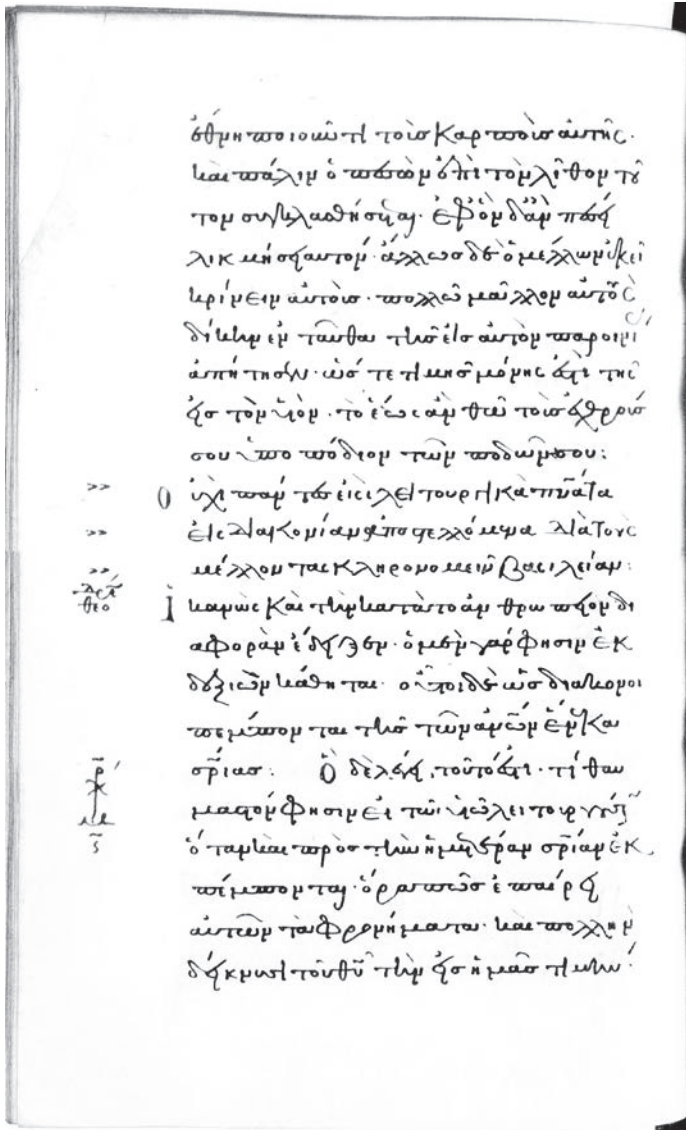 ἔθνη ποιοῦντι τοῖς καρποῖς αὐτῆς·
καὶ πάλιν ὁ πεσὼν ἐπὶ τὸν λίθον τοῦ
τον συνθλασθήσεται· ἐφ' ὃν δ' ἂν πέσῃ
λικμήσει αὐτόν· ἄλλως δὲ ὁ μέλλων ἐκεῖ
κρίνειν αὐτοῖς· πολλῶ μᾶλλον αὐτὸς
δίκην ἐνταῦθα τῆς εἰς αὐτὸν παροινί
ας ἀπήτησεν· ὥστε τιμῆς μόνης ἐστὶ τῆς
εἰς τὸν υἱὸν· τὸ ἕως ἂν θῶ τοὺς ἐχθρούς
σου ὑποπόδιον τῶν ποδῶν σου:
Οὐχὶ πάντες εἰσὶ λειτουργικὰ πν̅ατα
εἰς διακονίαν ἀποστελλόμενα διὰ τοὺς
μέλλοντας κληρονομεῖν βασιλείαν:
Ἱκανῶς καὶ τὴν κατὰ τὸ ἀνθρώπειον δι
αφορὰν ἔδειξεν· ὁ μὲν γάρ φησιν ἐκ
δεξιῶν κάθηται· οὗτοι δὲ ὡς διάκονοι
πέμπονται τῆς τῶν αν̅ων ἕνεκα
σρ̅ιας: Ὃ δὲ λέγει, τοῦτό ἐστι· τί θαυ
μαστόν φησιν εἰ τῶ υἱῶ λειτουργοῦσιν
ὅταν καὶ πρὸς τὴν ἡμετέραν σρ̅ιαν ἐκ
πέμπονται· ὅρα πῶς ἐπαίρει
αὐτῶν τὰ φρονήματα· καὶ πολλὴν
δείκνυσι τοῦ θυ̅ τὴν εἰς ἡμᾶς τιμήν·